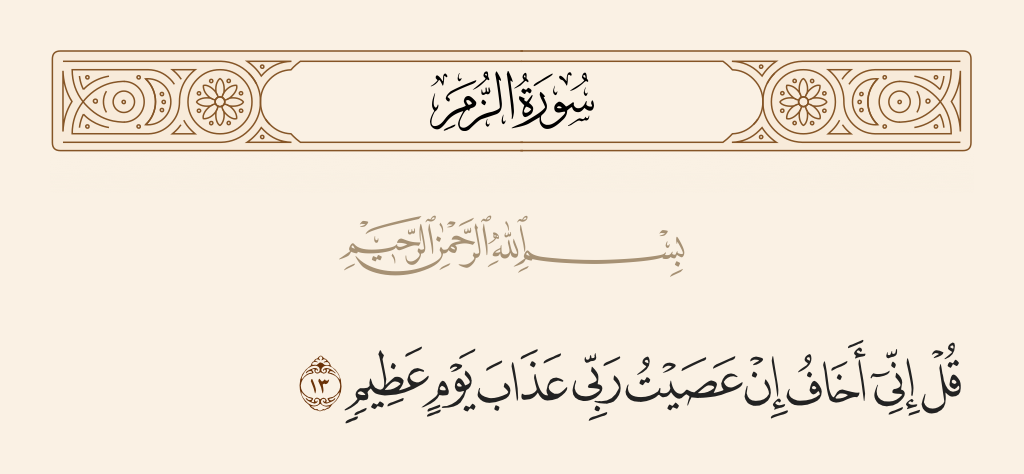 سُورَةُ الزُّمَرِ
بِسْمِ ٱللَّهِ ٱلرَّحْمَٰنِ ٱلرَّحِيمِ
قُلْ إِنِّىٓ أَخَافُ إِنْ عَصَيْتُ رَبِّى عَذَابَ يَوْمٍ عَظِيمٍ ١٣